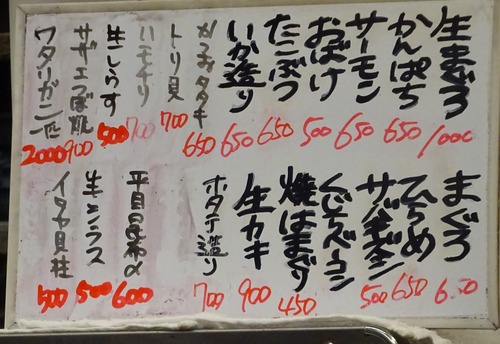 生まぐろ 1000
かんぱち 650
サーモン 650
おばけ 500
たこぶつ 650
いか造り 650
カツオタタキ 650
トリ貝 700
ハモチリ 700
生しらす 500
サザエつぼ焼 900
ワタリガニ一匹 2000
まぐろ 600
ひらめ 650
500
くじらベーコン
焼はまぐり 450
生カキ 900
ホタテ造り 700
平貝昆布〆 600
生シラス 500
イタヤ貝柱 500